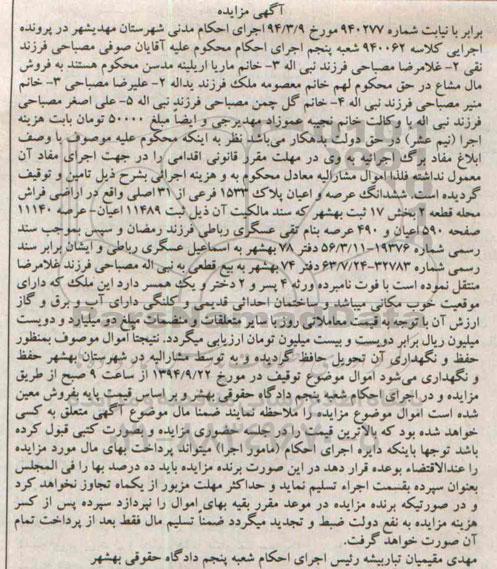 آگهی مزایده
برابر با نیابت شماره ۹۴۰۲۷۷ مورخ ۹۴/۳/۹ اجرای احکام مدنی شهرستان مهدیشهر در پرونده
اجرایی کلاسه ۹۴۰۰۶۲ شعبه پنجم اجرای احکام محکوم علیه آقایان صوفی مصباحی فرزند
نقی ۲- غلامرضا مصباحی فرزند نبی اله ۳- خانم ماریا اریلینه مدسن محکوم هستند به فروش
مال مشاع در حق محکوم لهم خانم معصومه ملک فرزند یداله ۲- علیرضا مصباحی ۳- خانم
منیر مصباحی فرزند نبی اله ۴- خانم گل چمن مصباحی فرزند نبی اله ۵- علی اصغر مصباحی
فرزند نبی اله با وکالت خانم نجیبه عموزاد مهدیرجی و ایضا مبلغ ۵۰۰۰۰ تومان بابت هزینه
اجرا (نیم عشر) در حق دولت بدهکار می‌باشد نظر به اینکه محکوم علیه موصوف با وصف
ابلاغ مفاد برگ اجرائیه به وی در مهلت مقرر قانونی اقدامی را در جهت اجرای مفاد آن
معمول نداشته فلذا اموال مشارالیه معادل محکوم به و هزینه اجرائی بشرح ذیل تامین و توقیف
گردیده است. ششدانگ عرصه و اعیان پلاک ۱۵۳۳ فرعی از ۳۱ اصلی واقع در اراضی فراش
محله قطعه ۲ بخش ۱۷ ثبت بهشهر که سند مالکیت آن ذیل ثبت ۱۱۴۸۹ اعیان - عرصه ۱۱۱۴۰
صفحه ۵۹۰ اعیان و ۴۹۰ عرصه بنام تقی عسگری رباطی فرزند رمضان و سپس بموجب سند
رسمی شماره ۱۹۳۷۶-۵۶/۳/۱۱ دفتر ۷۸ بهشهر به اسماعیل عسگری رباطی و ایشان برابر سند
رسمی شماره ۳۲۷۸۳-۶۳/۷/۲۴ دفتر ۷۴ بهشهر به بیع قطعی به نبی اله مصباحی فرزند غلامرضا
منتقل نموده است با فوت نامبرده ورثه ۴ پسر و ۲ دختر و یک همسر دارد این ملک که دارای
موقعیت خوب مکانی میباشد و ساختمان احداثی قدیمی و کلنگی دارای آب و برق و گاز
ارزش آن با توجه به قیمت معاملاتی روز با سایر متعلقات و منضمات مبلغ دو میلیارد و دویست
میلیون ریال برابر دویست و بیست میلیون تومان ارزیابی میگردد. نتیجتا اموال موصوف بمنظور
حفظ و نگهداری آن تحویل حافظ گردیده و به توسط مشارالیه در شهرستان بهشهر حفظ
و نگهداری می‌شود اموال موضوع توقیف در مورخ ۱۳۹۴/۹/۲۲ از ساعت ۹ صبح از طریق
مزایده و در اجرای احکام شعبه پنجم دادگاه حقوقی بهشر و بر اساس قیمت پایه بفروش معین
شده است اموال موضوع مزایده را ملاحظه نمایند ضمنا مال موضوع آگهی متعلق به کسی
خواهد شده بود که بالاترین قیمت را در جلسه حضوری مزایده و بصورت کتبی قبول کرده
باشد توجها باینکه دایره اجرای احکام (مامور اجرا) میتواند پرداخت بهای مال مورد مزایده
را عندالاقتضاء بوعده قرار دهد در این صورت برنده مزایده باید ده درصد بها را فی المجلس
بعنوان سپرده بقسمت اجراء تسلیم نماید و حداکثر مهلت مزبور از یکماه تجاوز نخواهد کرد
و در صورتیکه برنده مزایده در موعد مقرر بقیه بهای اموال را نپردازد سپرده پس از کسر
هزینه مزایده به نفع دولت ضبط و تجدید میگردد ضمنا تسلیم مال فقط بعد از پرداخت تمام
آن صورت خواهد گرفت.
مهدی مقیمیان تباربیشه رئیس اجرای احکام شعبه پنجم دادگاه حقوقی بهشهر